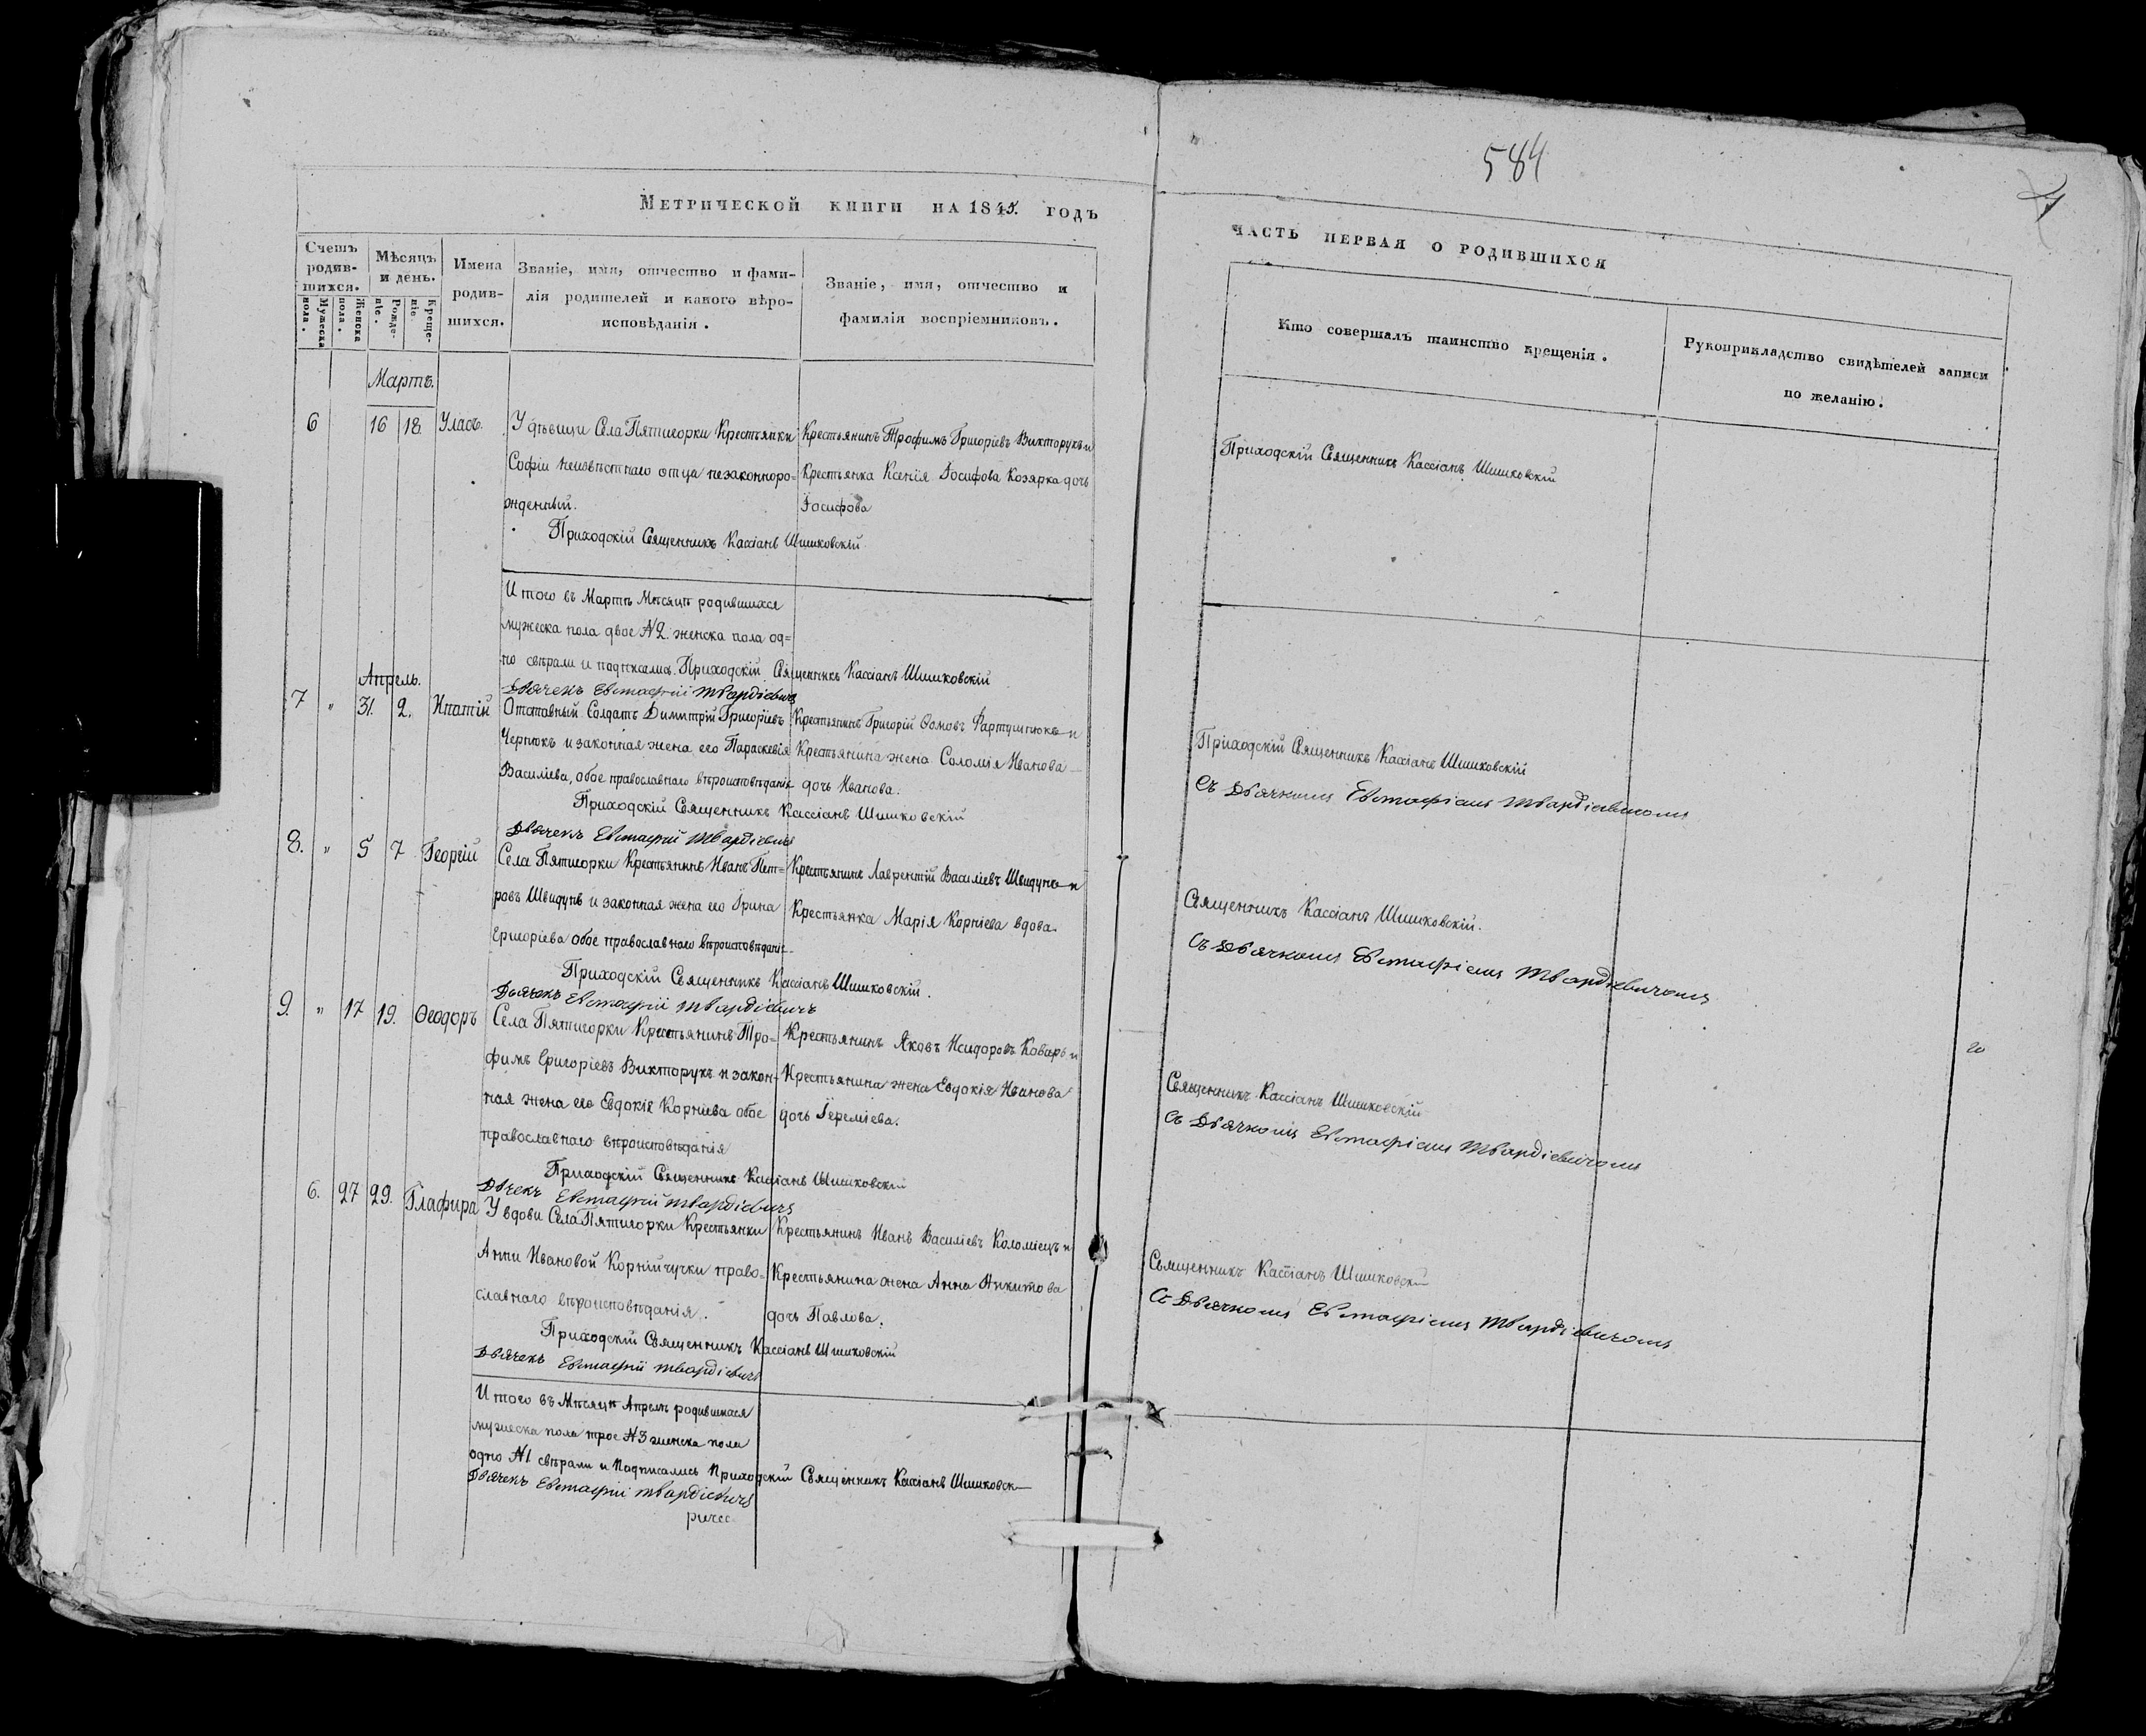 584
Метрической книги на 1845. годъ
часть первая о родившихся
Счетъ родив-шихся.
Мужеска пола.
Женска пола.
Мѣсяцъ и день.
Рожде-ніе.
Креще-ніе.
Имена родив-шихся.
Званіе, имя, отчество и фами-
лія родителей и какого вѣро-
исповѣданія.
Званіе, имя, отчество и
фамилія воспріемниковъ.
Кто совершалъ таинство крещенія.
Рукоприкладство свидѣтелей записи
по желанію.
Мартъ.
6 16 18. Уласъ.
У дѣвицы Села Пятигорки Крестьянки
Софіи неизвѣстнаго отца незаконноро-
жденный.
Приходскій Священникъ Кассіанъ Шишковскій
Крестьянинъ Трофимъ Григоріевъ Викторукъ и
Крестьянка Ксенія Іосифова Козярка дочь
Іосифова
Приходскій Священникъ Кассіанъ Шишковскій
Итого въ Мартѣ Мѣсяцѣ родившихся
мужеска пола двое №2. женска пола од=
но свѣрали и подписались Приходскій Священникъ Кассіанъ Шишковскій
Дьячекъ Евстафій Твардіевичъ
Апрель.
7 " 31. 2. Ипатій
Отставный Солдатъ Димитрій Григоріевъ
Чернюкъ и законная жена его Параскевія
Василіева, обое православнаго вѣроисповѣданія
Приходскій Священникъ Кассіанъ Шишковскій
Дьячекъ Евстафій Твардіевичъ
Крестьянинъ Григорій Ѳомовъ и
Крестьянина жена Соломія Иванова
дочь Иванова.
Приходскій Священникъ Кассіанъ Шишковскій
Съ Дьячкомъ Евстафіемъ Твардіевичомъ
8. " 5 7 Георгій
Села Пятигорки Крестьянинъ Иванъ Пет=
ровъ Швидунъ и законная жена его Ирина
Григоріева обое православнаго вѣроисповѣданія
Приходскій Священникъ Кассіанъ Шишковскій.
Дьячекъ Евстафій Твардіевичъ
Крестьянинъ Лаврентій Василіевъ Швидунъ и
Крестьянка Марія Корніева вдова.
Священникъ Кассіанъ Шишковскій.
Съ Дьячкомъ Евстафіемъ Твардіевичомъ
9. " 17 19. Ѳеодоръ
Села Пятигорки Крестьянинъ Тро=
фимъ Григоріевъ Викторукъ и закон-
ная жена его Евдокія Корніева обое
православнаго вѣроисповѣданія
Приходскій Священникъ Кассіанъ Шишковскій
Дьячекъ Евстафій Твардіевичъ
Крестьянинъ Яковъ Исидоровъ Коваръ и
Крестьянина жена Евдокія Иванова
дочь Іереміева.
Священникъ Кассіанъ Шишковскій
Съ Дьячкомъ Евстафіемъ Твардіевичомъ
6. 27 29. Глафира
У вдови Села Пятигорки Крестьянки
Анны Ивановой Корнійчучки право-
славнаго вѣроисповѣданія.
Приходскій Священникъ Кассіанъ Шишковскій
Дьячекъ Евстафій Твардіевичъ
Крестьянинъ Иванъ Василіевъ Коломіецъ и
Крестьянина жена Анна Никитова
дочь Павлова.
Священникъ Кассіанъ Шишковскій
Съ Дьячкомъ Евстафіемъ Твардіевичомъ
Итого въ Мѣсяцѣ Апрелѣ родившихся
мужеска пола трое №3 женска пола
одно №1 свѣрали и Подписались Приходскій Священникъ Кассіанъ Шишковск
Дьячекъ Евстафій Твардіевичъ